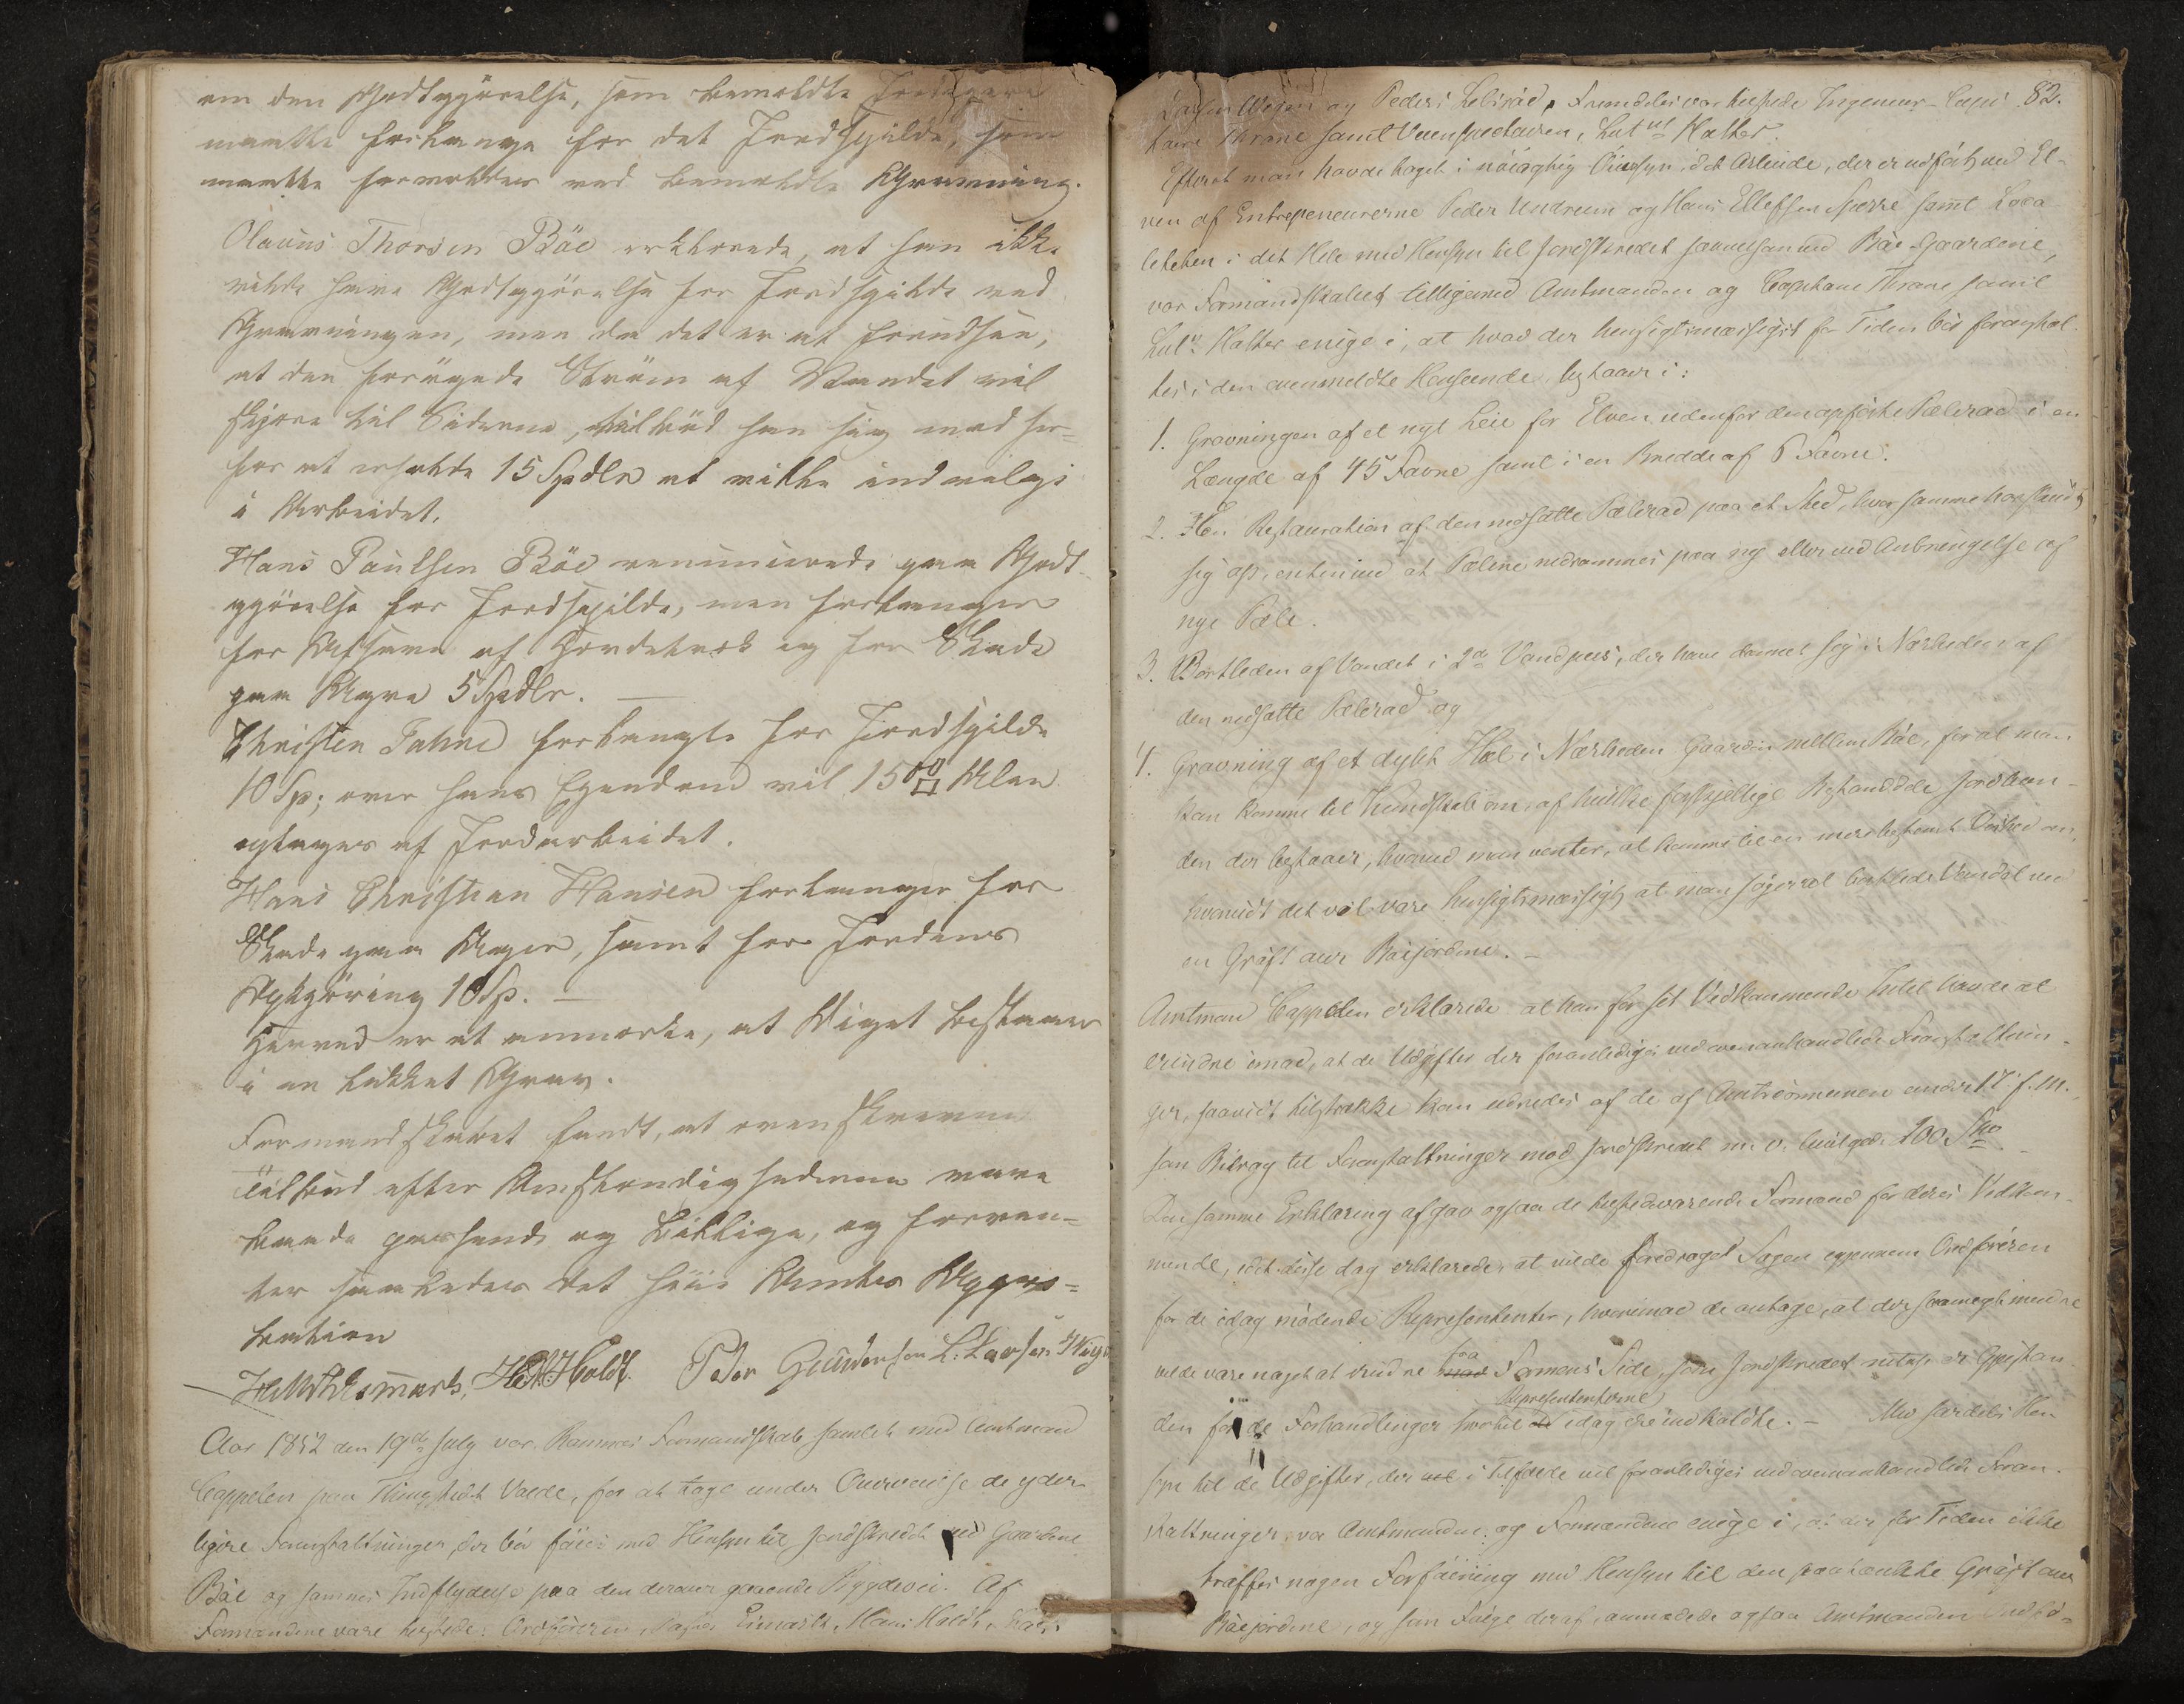 om den Godtgjörelse, som bemeldte Jordeiere
maatte forlange for det Jordspilde, som
maatte foraarsages ved bemeldte Gravning.
Olauus Thorsen Böe erklærede, at han ikke
vilde have Godtgjörelse for Jordspilde ved
Gravningen, men da det er at forudsee,
at den forögede Ström af Vandet vil
skjære til Siderne, tilböd han sig mod her=
for at erholde 15 Spdlr at ville indvilge
i Arbeidet.
Hans Paulsen Böe renuncerede paa Godt
gjörelse for Jordspilde, men forlanger
for Afsavn af Gjerdetverk og for Skade
paa Ageren 5 Spdlr.
Christen Fahne forlangte for Jordspilde
10 Sp; over hans Eiendom vil 1500 □ Alen
optages af Jordarbeidet.
Hans Christian Hansen forlanger for
Skade paa Ageren, samt for Jordens
Opkjöring 10 Sp. —
Herved er at anmærke, at Diget bestaaer
i en lukket Grav.
Formandskabet fandt, at ovenskrevne
Tilbud efter Omstændighederne vare
baade passende og billige, og forven=
ter saaledes det höie Amtes Appro=
bation
H. Holdt. Peder Gundersen L. Larsen Weyen
Aar 1852 den 19de July var Ramnes Formandskab samlet med Amtmand
Cappelen paa Thingstedet Valde, for at tage under Overveielse de yder-
ligere Foranstaltninger, der bör föies med Hensyn til Jordskredet ved Gaardene
Böe og sammes Indflydelse paa den derover gaaende Bygdevei. Af
Formændene vare tilstede: Ordföreren, Eismark, Hans Holdt,
82.
Larsen Weyen og Peder Lebsröd. Fremdeles var tilstede Ingenieur-Capi
taine Thrane samt Veiinspecteuren, Lutnt Hather.
Efterat man havde taget i nöiagtig Öiesyn det Arbeide, der er udfört ved El-
ven af Entrepeneurerne Peder Undrum og Hans Ellefsen Sperre samt Loca
liteten i det Hele med Hensyn til Jordskredet saavelsom ved Böe-Gaardene,
var Formandskabet tilligemed Amtmanden og Capitaine Thrane samt
Lutn Hather enige i, at hvad der hensigtsmæssigst for Tiden bör foranstal
tes i den ovenmeldte Henseende bestaaer i:
1. Gravningen af et nyt Leie for Elven udenfor den opförte Pælerad i en
Længde af 45 Favne samt i en Bredde af 6 Favne.
2. En Restauration af den nedsatte Pælerad paa et Sted, hvor samme har skudt
sig op, enten ved at Pælene nedrammes paa ny eller ved Anbringelse af
nye Pæle.
3. Bortleden af Vandet i 2de Vandpuse, der have dannet sig i Nærheden af
den nedsatte Pælerad og
4. Gravning af et dybt Hul i Nærheden Gaarden mellem Böe, for at man
kan komme til Kundskab om, af hvilke forskjellige Bestanddele Jordbun-
den der bestaaer, hvorved man venter, at komme til en mere bestemt Vished om,
hvorvidt det vil være hensigtsmæssigt, at man söger at bortlede Vandet ved
en Gröft over Böejordene. —
Amtmand Cappelen erklærede at han for sit Vedkommende Intet havde at
erindre imod, at de Udgifter der foranlediges ved ovenanhandlede Foranstaltnin-
ger, saavidt tilstrække kan udredes af de af Amtsformanden under 17 f. M.
som Bidrag til Foranstaltninger mod Jordskredet m. v. bevilgede 100 Spd. —
Den samme Erklæring afgav ogsaa de tilstedeværende Formænd for deres Vedkom-
mende, idet disse dog erklærede, at ville foredraget Sagen igjennem Ordföreren
for de idag mödende Repræsentanter, hvorimod de antage, at der saameget mindre
vilde være noget at erindre mod fra Sammes Side, som Jordskredet netop er Gjenstan
den for de Forhandlinger hvortil de Repræsentanterne idag ere indkaldte. — Med særdeles Hen
syn til de Udgifter, der vil i Tilfælde vil foranlediges ved ovenanhandlede Foran-
staltninger var Amtmanden og Formændene enige i, at der for Tiden ikke
træffes nogen Forföining med Hensyn til den paatænkte Gröft over
Böejordene, og som Fölge deraf anmodede ogsaa Amtmanden